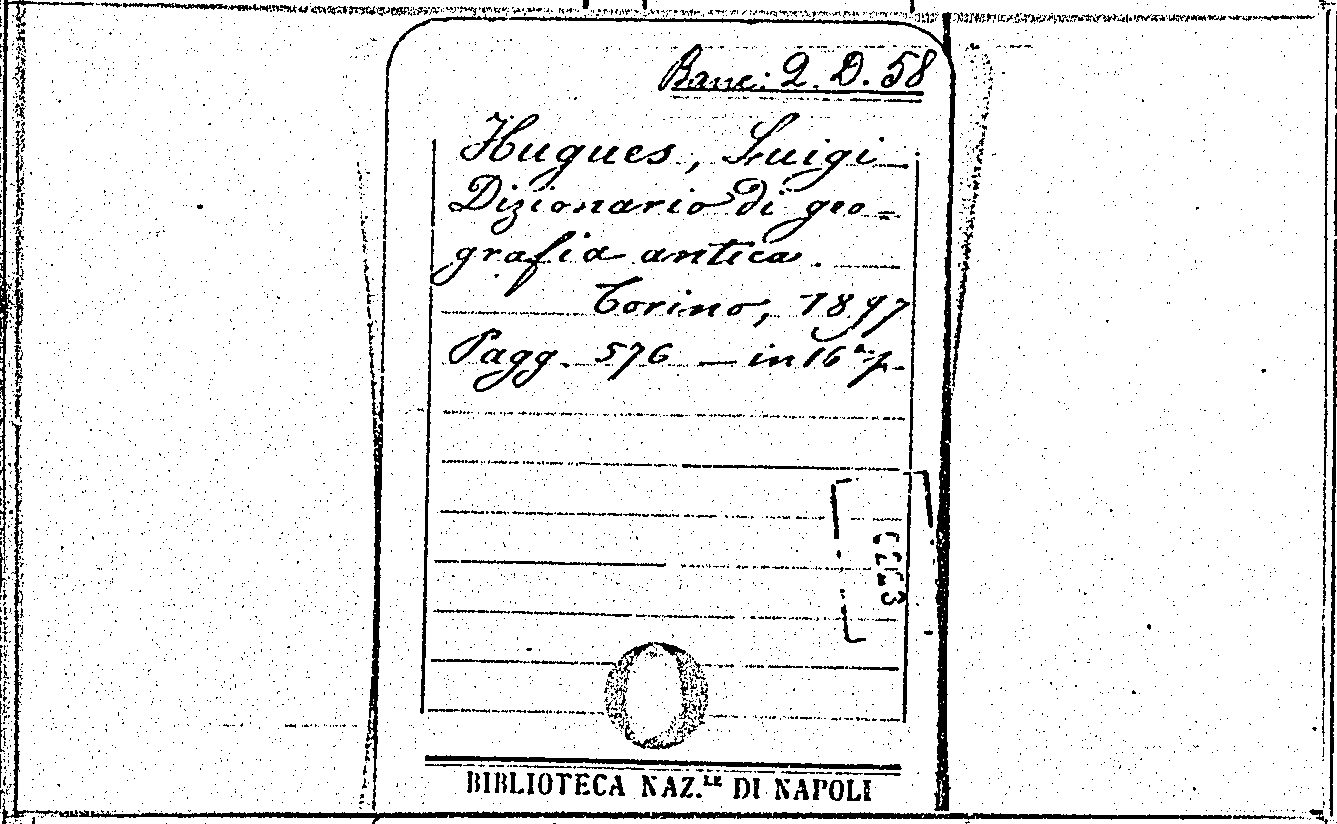 Banc: 2. D. 58
Hugues, Luigi
Dizionario di geo=
grafia antica.
Torino, 1897
Pagg. 576 — in 16° p.
BIBLIOTECA NAZ.LE DI NAPOLI